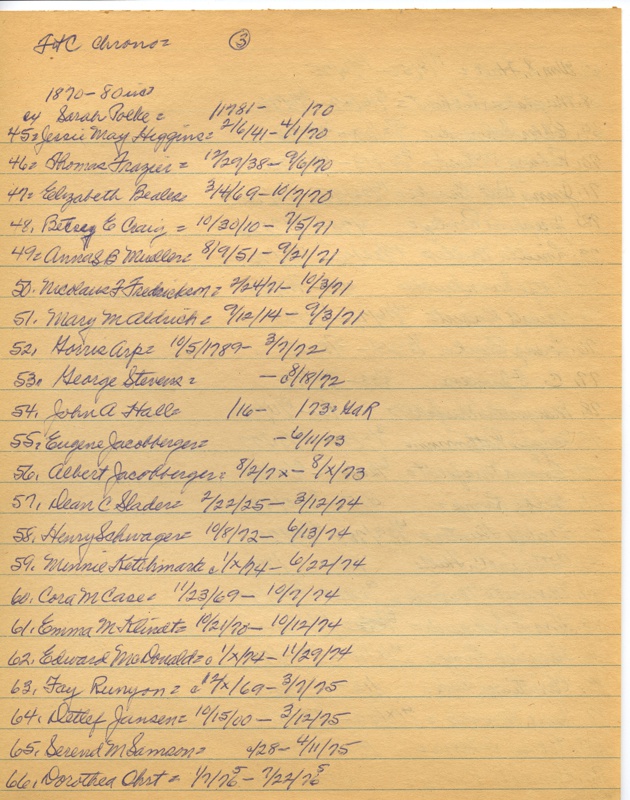 FHC Chrono= ③
1870-80ies
ex Sarah Polke = / /1781 - / /70
45= Jessie May Higgins= 2/6/41 - 4/1/70
46= Thomas Frazier = 12/29/38 - 9/6/70
47= Elizabeth Beales= 3/4/69 - 10/7/70
48. Betsey E Craig = 10/30/10 - 7/5/71
49= Anna B Mueller= 8/9/51 - 9/21/71
50. Nicolaus F Fredrickson= 2/24/71 - 10/3/71
51. Mary M Aldrich = 9/12/14 - 9/3/71
52. Harris Arp= 10/5/1789 - 3/7/72
53. George Stevens = - 8/18/72
54. John A Hall= /16 - /73= GaR
55. Eugene Jacobberger= - 6/11/73
56. Albert Jacobberger= 8/2/7x - 8/x/73
57. Dean C Slader= 2/22/25 - 3/12/74
58. Henry Schwager= 10/8/72 - 6/13/74
59. Minnie Ketchmark c 1/x/74 - 6/22/74
60. Cora M Case= 11/23/69 - 10/7/74
61. Emma M Klindt= 10/21/70 - 10/12/74
62. Edward McDonald= c 1/x/74 - 11/29/74
63. Fay Runyon = c 12/x/69 - 3/7/75
64. Detlef Jansen= 10/15/00 - 3/12/75
65. M Samson= /28 - 4/11/75
66. Dorothea Ohrt = 1/7/75 - 7/22/75